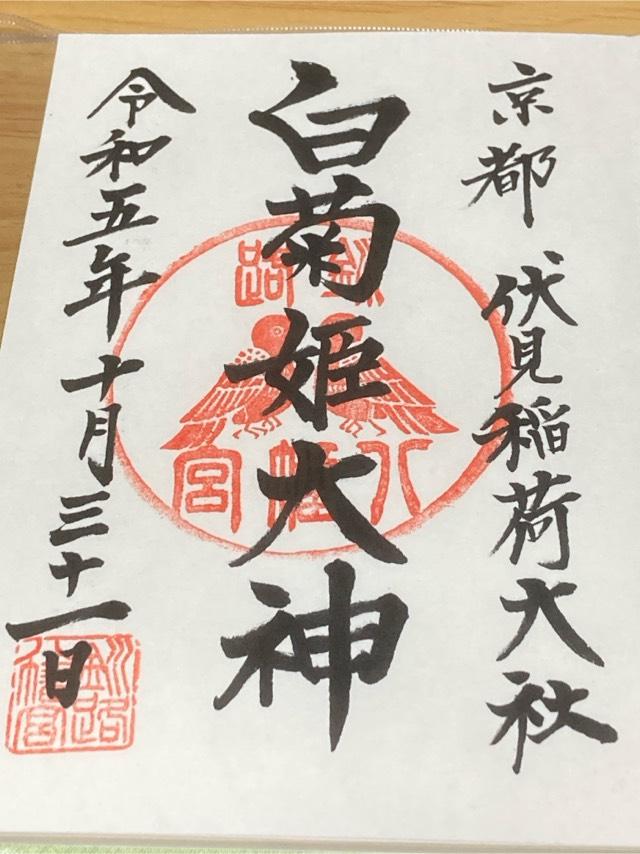 京都 伏見稲荷大社
白菊姫大神
令和五年十月三十一日
釧路
八幡宮